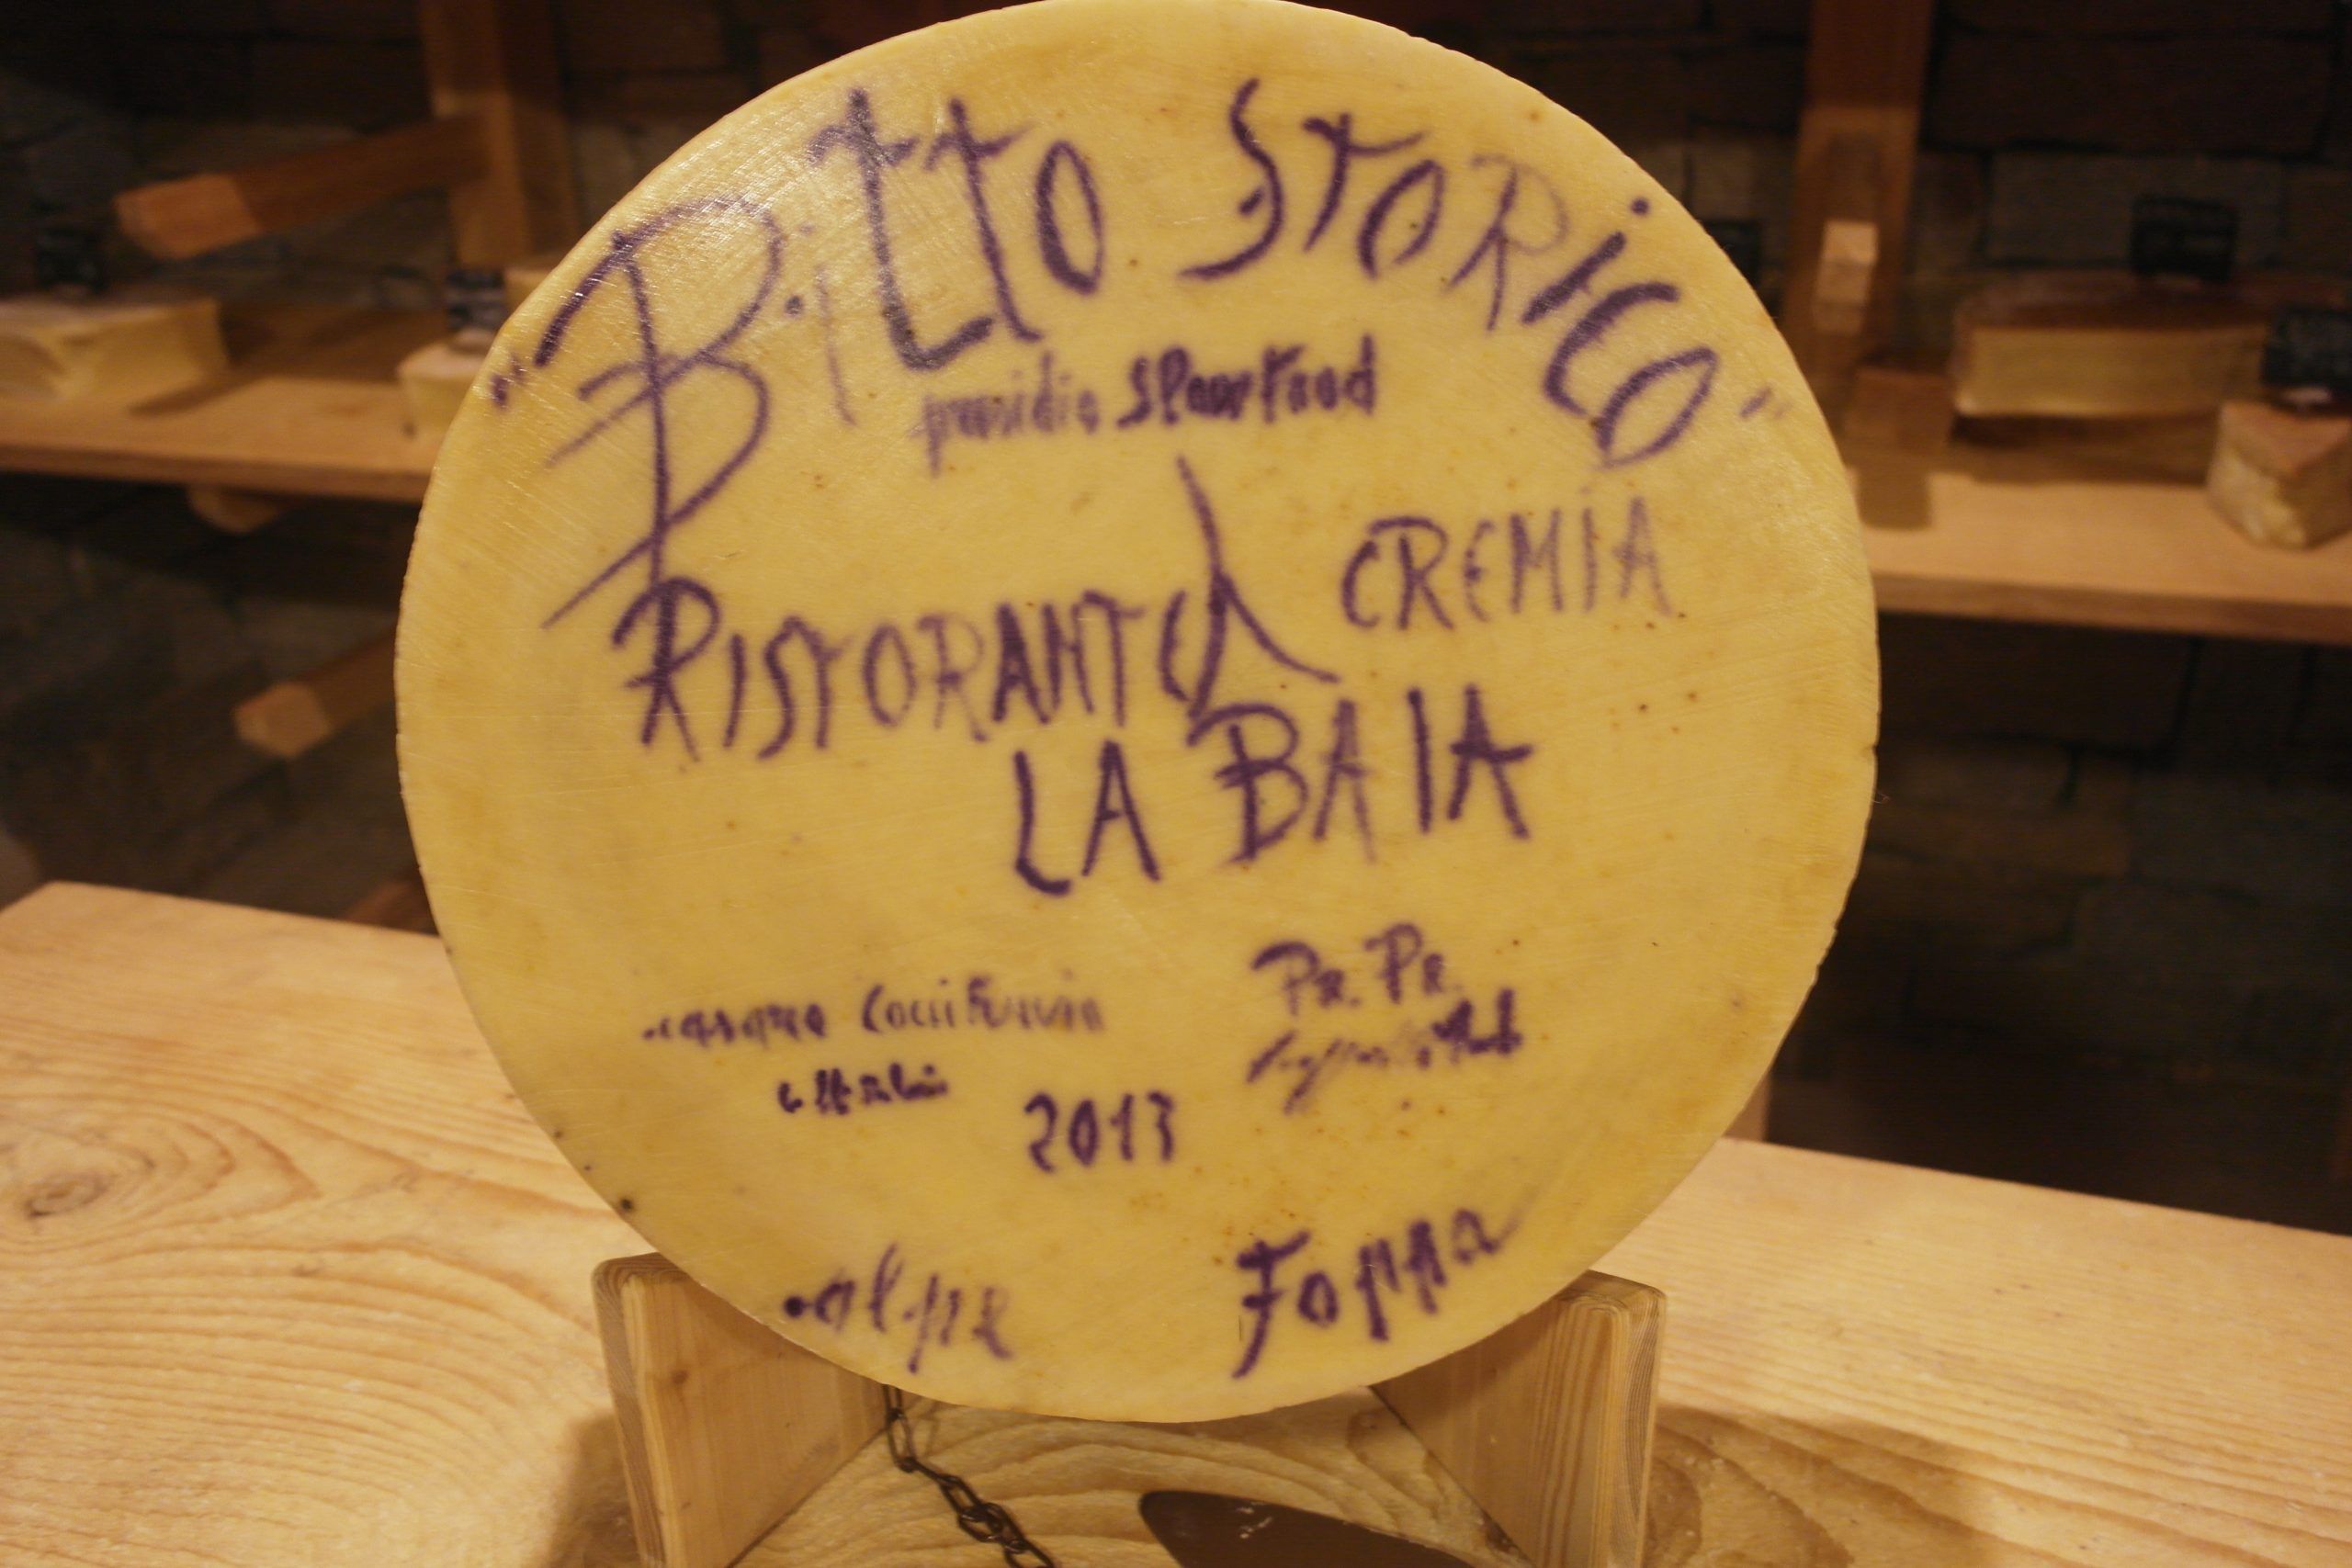 "Bitto STORiCO"
presidio Slow Food
RISTORANTE CREMIA
LA BAIA
PR. PR.
2013
alpe Foppa